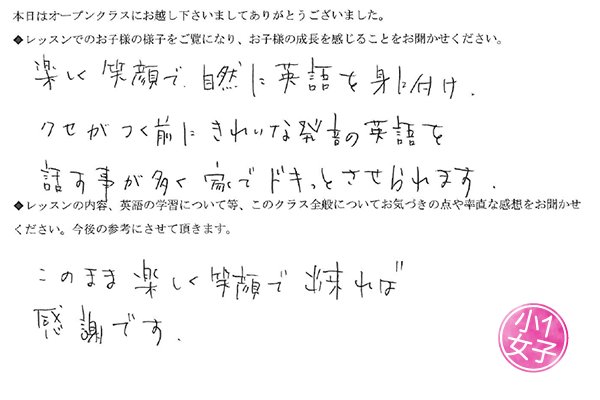 本日はオープンクラスにお越し下さいましてありがとうございました。
◆レッスンでのお子様の様子をご覧になり、お子様の成長を感じることをお聞かせください。
楽しく笑顔で、自然に英語を身に付け、
クセがつく前にきれいな発音の英語を
話す事が多く家でドキッとさせられます。
◆レッスンの内容、英語の学習について等、このクラス全般についてお気づきの点や率直な感想をお聞かせ
ください。今後の参考にさせて頂きます。
このまま楽しく笑顔で出来れば
感謝です。
小1
女子